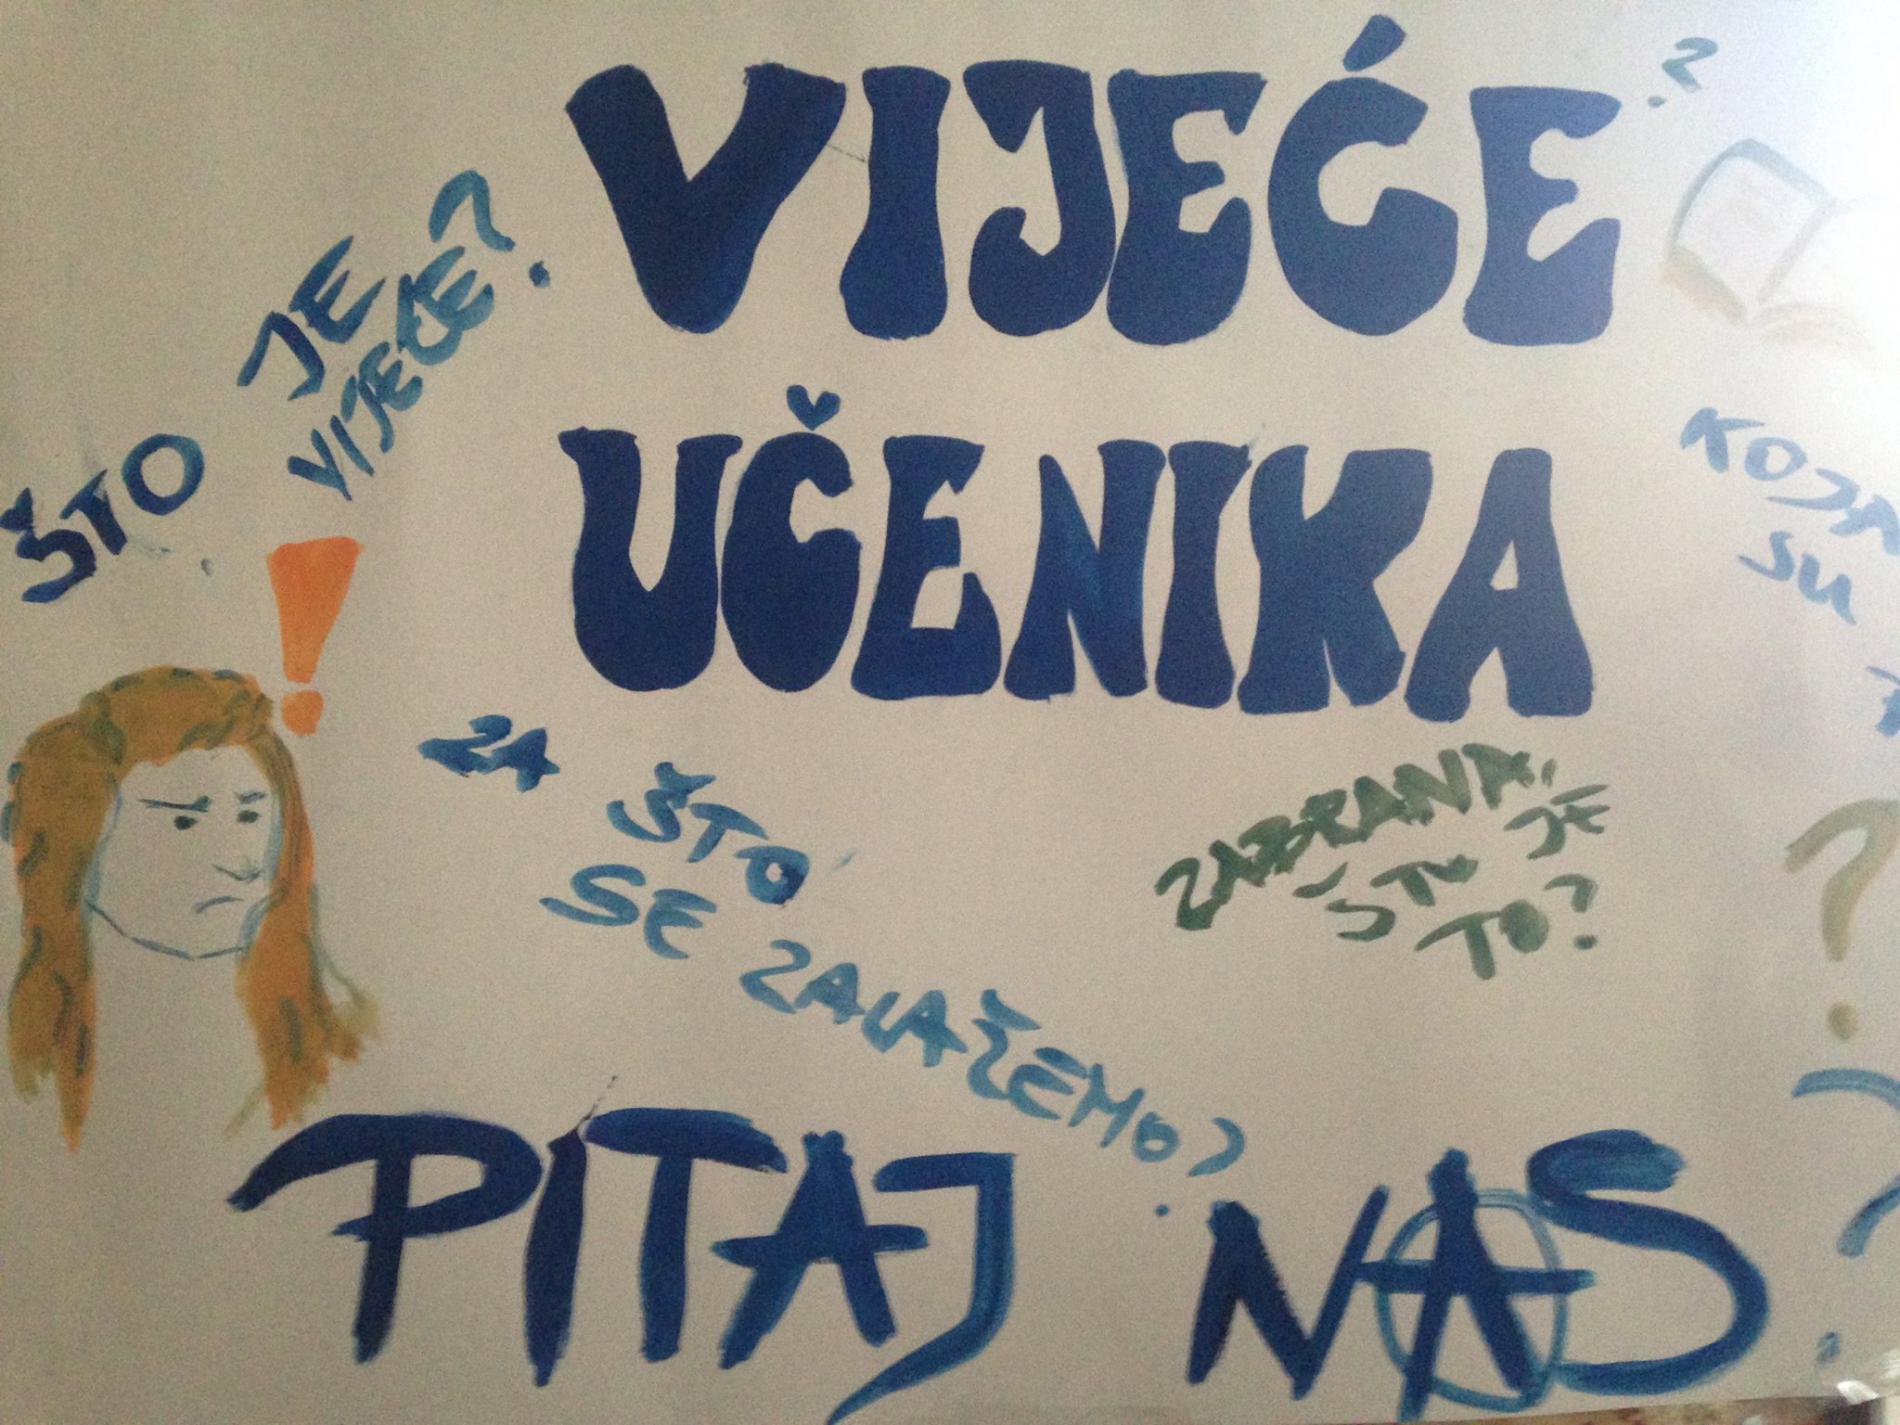 VIJEĆE
UČENIKA
ŠTO JE
VIJEĆE?
KOJA
SU
ZA ŠTO
SE ZALAŽEMO?
ZABRANA,
ŠTO JE
TO?
PITAJ NAS